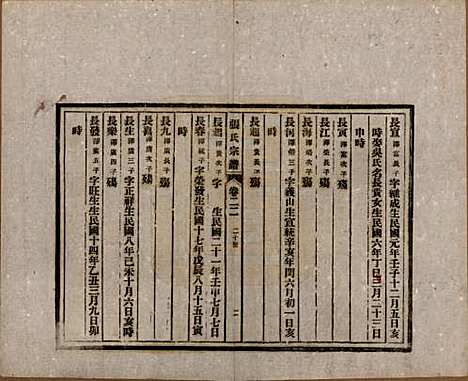 長宣 澤富長子 字繼成生民國元年壬子十二月五日亥
時娶吳氏名長貴女生民國六年丁巳二月二十三日
申時
長寅 澤富次子 殤
長江 澤榮長子 殤
長海 澤榮次子 殤
長河 澤榮三子 字義山生宣統辛亥年閏六月初一日亥
時
長 澤貴長子 殤
張氏宗譜 卷二二 二
長 澤貴次子 字 生民國二十一年壬申七月七日
時
長春 澤貴三子 字榮發生民國十七年戊辰八月十五日寅
時
長九 澤廣長子 殤
長萬 澤廣次子 殤
長生 澤廣三子 字正祥生民國八年己未十月六日亥時
長樂 澤廣四子 殤
長發 澤廣五子 字旺生生民國十四年乙丑三月九日卯
時